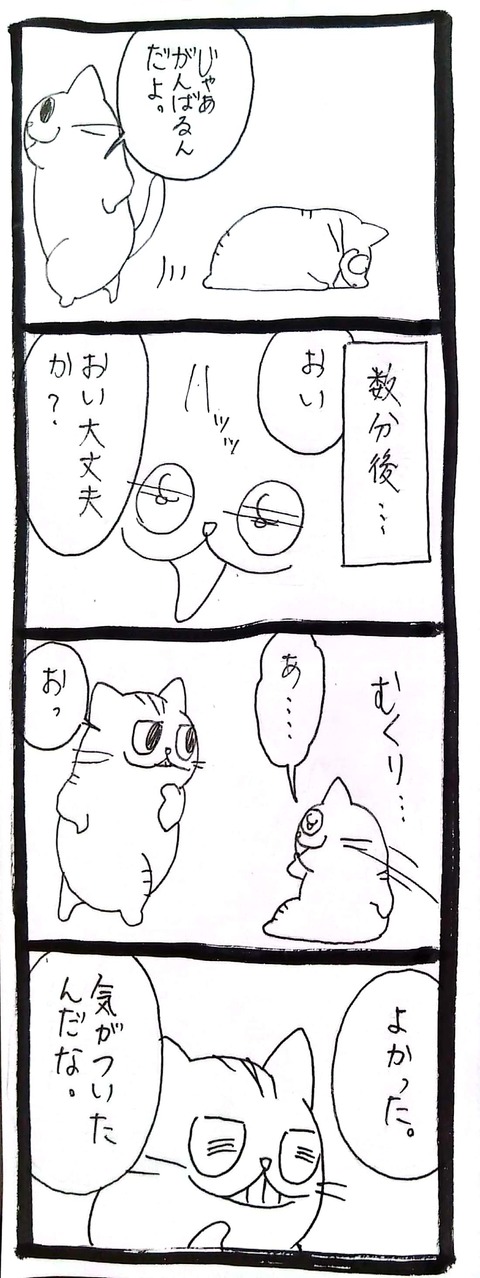 じゃあ
がんばるん
だよ。
数分後…
おい
ハッッ
おい大丈夫
か？
むくり…
あ……
おっ
よかった。
気がついた
んだな。